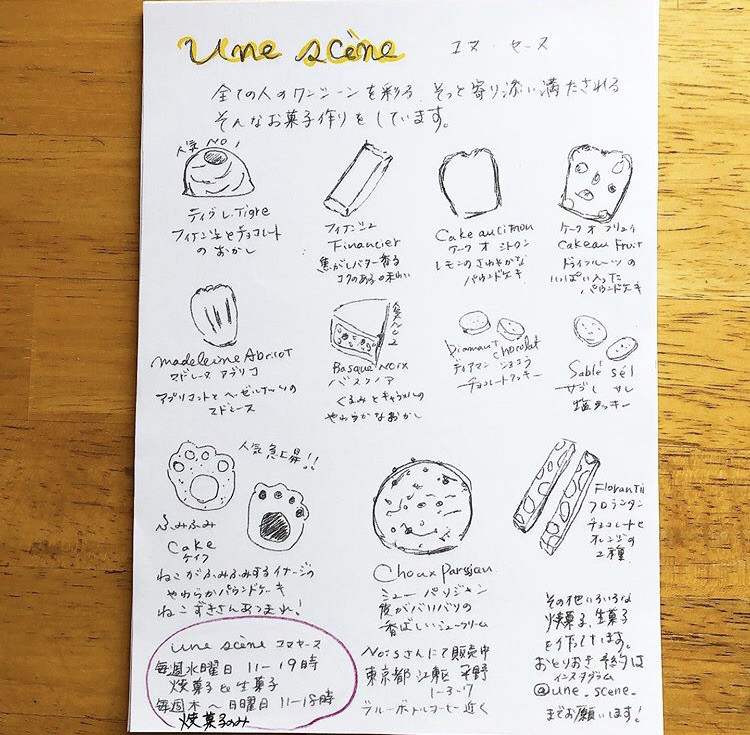 une scène
ユヌ・セーヌ
全ての人のワンシーンを彩る そっと寄り添い満たされる
そんなお菓子作りをしています。
人気No1
ティグレ Tigre
フィナンシェとチョコレート
のおかし
フィナンシェ
Financier
焦がしバター香る
コクのある味わい
Cake au citron
ケークオ シトロン
レモンのさわやかな
パウンドケーキ
ケークオフリュイ
Cakeau Fruit
ドライフルーツの
いっぱい入った
パウンドケーキ
madeleine Abricot
マドレーヌ アブリコ
アプリコットとヘーゼルナッツの
マドレーヌ
人気No2
Basque Noix
バスクノア
くるみとキャラメルの
やわらかなおかし
Diamant chocolat
ディアマン ショコラ
チョコレートクッキー
Sablé sel
サブレ サレ
塩クッキー
人気急上昇!!
ふみふみ
Cake
ケイク
ねこがふみふみするイメージの
やわらかパウンドケーキ
ねこずきさんあつまれ!
Choux Parisian
シュー パリジャン
皮がバリバリの
香ばしいシュークリーム
フロランタン
チョコレートと
オレンジの
2種
une scène ユヌセーヌ
毎週水曜日 11-19時
焼菓子と生菓子
毎週木〜日曜日 11-18時
焼菓子のみ
Noisさんにて販売中
東京都江東区平野
1-3-7
ブルーボトルコーヒー近く
その他いろいろな
焼菓子、生菓子
を作っています。
おとりおき予約は
インスタグラム
@une_scene_
までお願います!